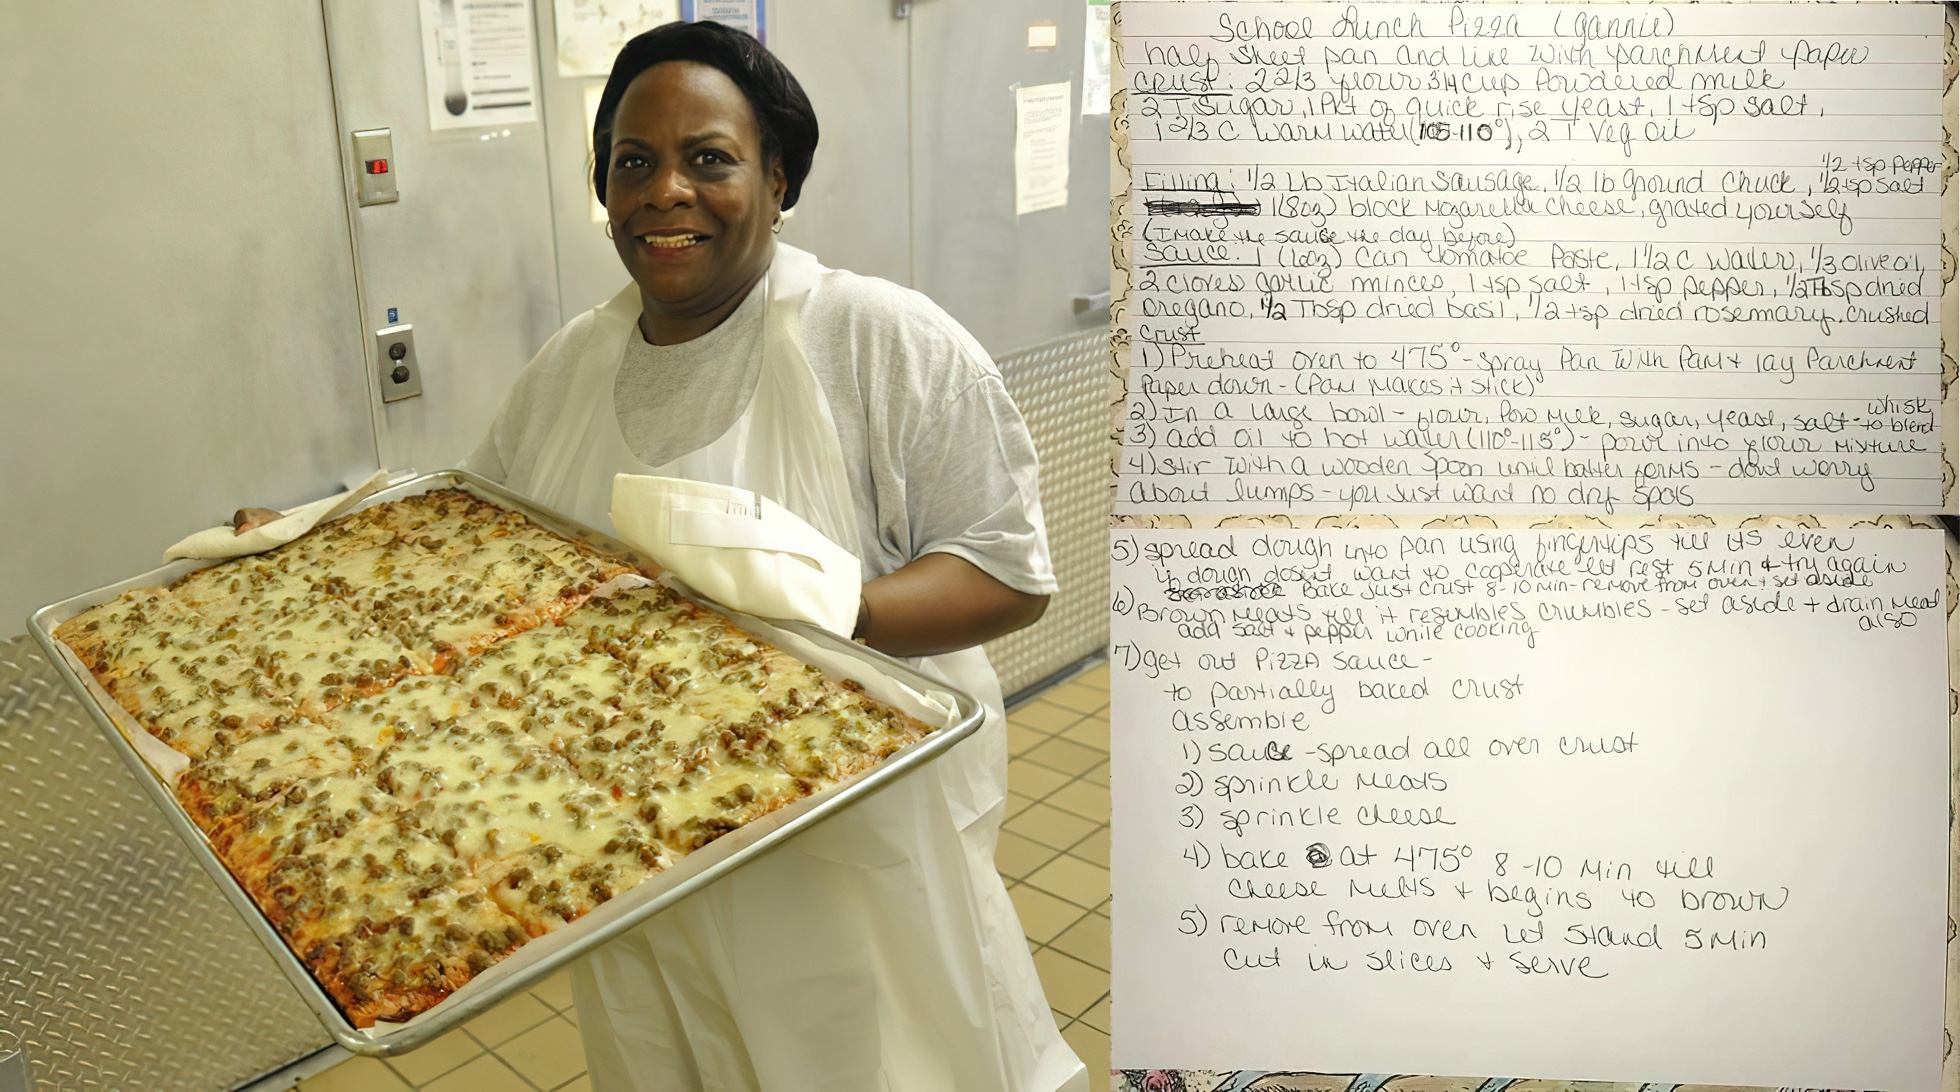 School Lunch Pizza (Gannie)
half sheet pan and line with parchment paper
Crust: 2 2/3 flour 3/4 cup Powdered milk
2 T Sugar, 1 Pkt of quick rise yeast, 1 tsp salt,
1 2/3 C warm water (105-110°), 2 T Veg oil
1/2 tsp Pepper
Filling: 1/2 Lb Italian Sausage, 1/2 lb Ground Chuck, 1/2 tsp Salt
1 (8oz) block Mozarella Cheese, grated yourself
(I make the sauce the day before)
Sauce: 1 (6oz) Can tomatoe Paste, 1 1/2 C water, 1/3 olive oil,
2 cloves garlic minces, 1 tsp salt, 1 tsp pepper, 1/2 Tbsp dried
oregano, 1/2 Tbsp dried basil, 1/2 tsp dried rosemary. crushed
Crust
1) Preheat oven to 475° - Spray Pan with Pam + lay Parchment
Paper down - (Pam makes it stick)
2) In a large bowl - flour, Pow milk, sugar, yeast, salt - whisk to blend
3) add oil to hot water (110°-115°) - pour into flour mixture
4) Stir with a wooden spoon until batter forms - dont worry
about lumps - you just want no dry spots
5) spread dough into pan using fingertips till its even
if dough dosent want to cooperate let rest 5 min + try again
Bake just crust 8-10 min - remove from oven + set aside
6) Brown meats till it resembles crumbles - set aside + drain meat also
add salt + pepper while cooking
7) get out Pizza sauce -
to partially baked crust
assemble
1) sauce - spread all over crust
2) sprinkle meats
3) sprinkle cheese
4) bake at 475° 8-10 min till
cheese melts + begins to brown
5) remove from oven let stand 5 min
cut in slices + serve